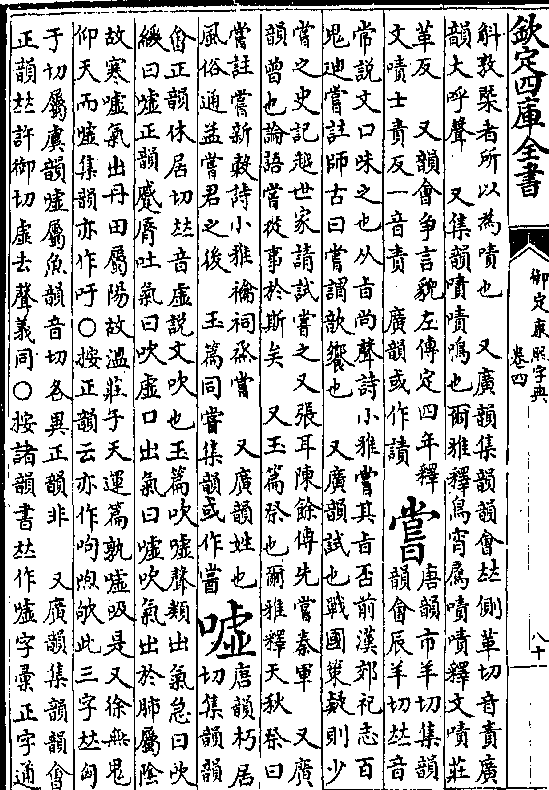 欽定四庫全書
御定康熙字典
卷四
八十
斛敦槩者所以為嘖也 又廣韻集韻韻會𠀤側革切音責廣
韻大呼聲 又集韻嘖嘖鳴也爾雅釋鳥宵鳸嘖嘖釋文嘖莊
革反 又韻會爭言貌左傳定四年釋
文嘖士責反一音責 廣韻或作讀
嘗
唐韻市羊切集韻
韻會辰羊切𠀤音
常說文口味之也从旨尚聲詩小雅嘗其旨否前漢郊祀志百
鬼廸嘗註師古曰嘗謂歆饗也 又廣韻試也戰國策疑則少
嘗之史記越世家請試嘗之又張耳陳餘傳先嘗秦軍 又廣
韻曾也論語嘗從事於斯矣 又玉篇祭也爾雅釋天秋祭曰
嘗註嘗新穀詩小雅禴祠烝嘗 又廣韻姓也
風俗通孟嘗君之後 玉篇同甞集韻或作甞
噓
唐韻朽居
切集韻韻
會正韻休居切𠀤音虛說文吹也玉篇吹噓聲類出氣急曰吹
緩曰噓正韻蹙脣吐氣曰吹虛口出氣曰噓吹氣出於肺屬陰
故寒噓氣出丹田屬陽故溫莊子天運篇孰噓吸是又徐無鬼
仰天而噓集韻亦作吁○按正韻云亦作呴喣欨此三字𠀤匈
于切屬虞韻噓屬魚韻音切各異正韻非 又廣韻集韻韻會
正韻𠀤許御切虛去聲義同○按諸韻書𠀤作噓字彙正字通